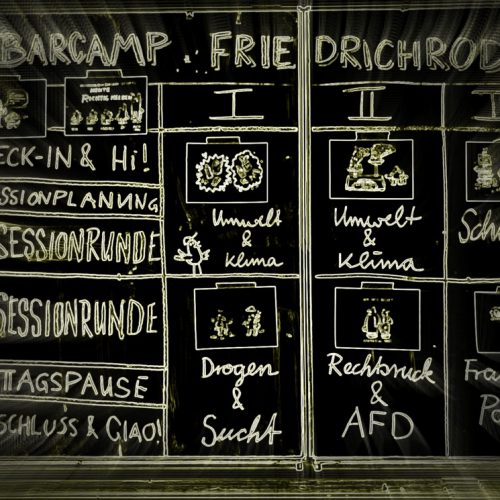 BARCAMP FRIEDRICHROD
I II I
ECK-IN & Hi!
SSIONPLANUNG
SESSIONRUNDE
SESSIONRUNDE
TTAGSPAUSE
SCHLUSS & CIAO!
Umwelt
&
Klima
Umwelt
&
Klima
Sch
Drogen
&
Sucht
Rechtsruck
&
AFD
Fra
Po